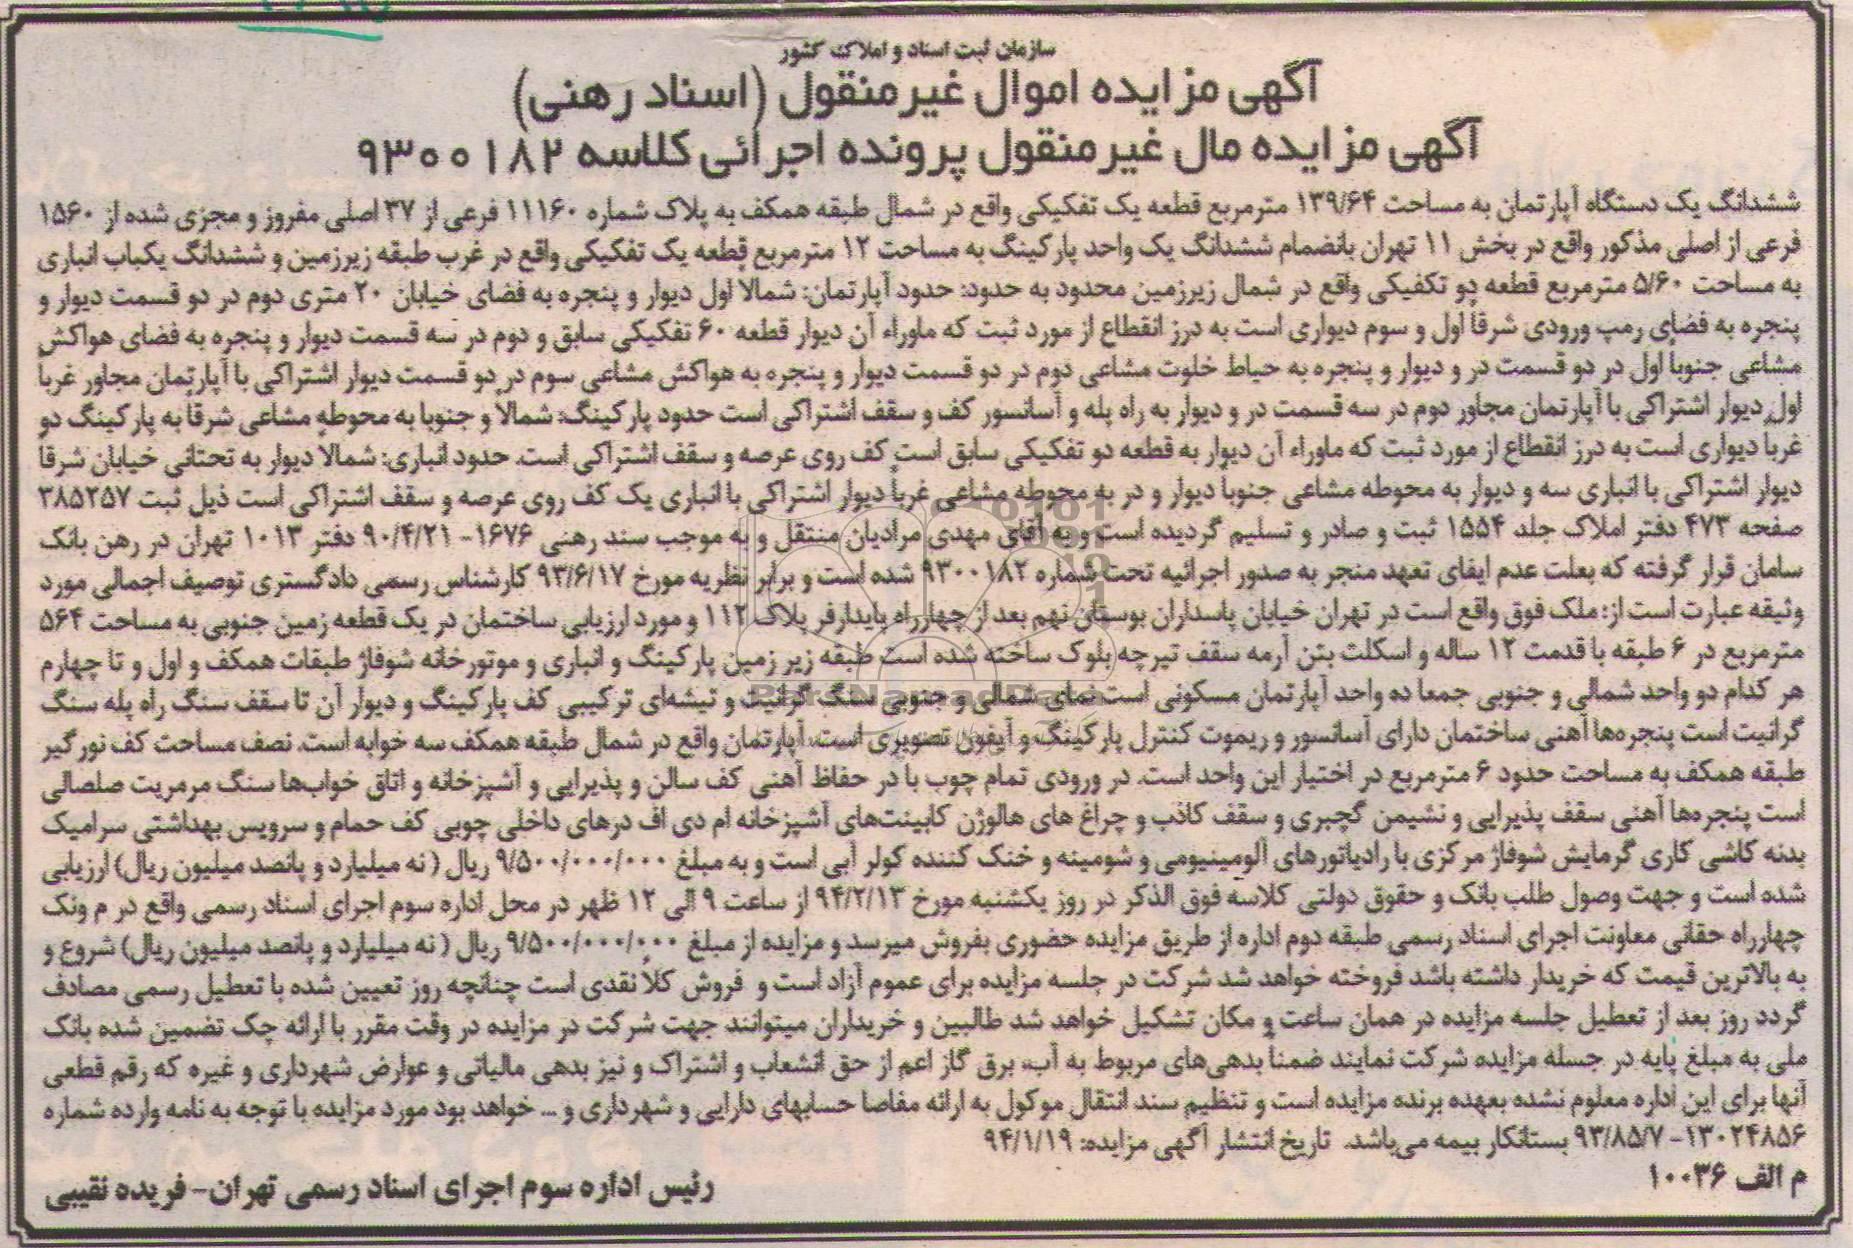 سازمان ثبت اسناد و املاک کشور
آگهی مزایده اموال غیرمنقول (اسناد رهنی)
آگهی مزایده مال غیرمنقول پرونده اجرائی کلاسه ۹۳۰۰۱۸۲
ششدانگ یک دستگاه آپارتمان به مساحت ۱۳۹/۶۴ مترمربع قطعه یک تفکیکی واقع در شمال طبقه همکف به پلاک شماره ۱۱۱۶۰ فرعی از ۳۷ اصلی مفروز و مجزی شده از ۱۵۶۰
فرعی از اصلی مذکور واقع در بخش ۱۱ تهران بانضمام ششدانگ یک واحد پارکینگ به مساحت ۱۲ مترمربع قطعه یک تفکیکی واقع در غرب طبقه زیرزمین و ششدانگ یکباب انباری
به مساحت ۵/۶۰ مترمربع قطعه دو تکفیکی واقع در شمال زیرزمین محدود به حدود: حدود آپارتمان: شمالا اول دیوار و پنجره به فضای خیابان ۲۰ متری دوم در دو قسمت دیوار و
پنجره به فضای رمپ ورودی شرقا اول و سوم دیواری است به درز انقطاع از مورد ثبت که ماوراء آن دیوار قطعه ۶۰ تفکیکی سابق و دوم در سه قسمت دیوار و پنجره به فضای هواکش
مشاعی جنوبا اول در دو قسمت در و دیوار و پنجره به حیاط خلوت مشاعی دوم در دو قسمت دیوار و پنجره به هواکش مشاعی سوم در دو قسمت دیوار اشتراکی با آپارتمان مجاور غربا
اول دیوار اشتراکی با آپارتمان مجاور دوم در سه قسمت در و دیوار به راه پله و آسانسور کف و سقف اشتراکی است حدود پارکینگ: شمالا و جنوبا به محوطه مشاعی شرقا به پارکینگ دو
غربا دیواری است به درز انقطاع از مورد ثبت که ماوراء آن دیوار به قطعه دو تفکیکی سابق است کف روی عرصه و سقف اشتراکی است. حدود انباری: شمالا دیوار به تحتانی خیابان شرقا
دیوار اشتراکی با انباری سه و دیوار به محوطه مشاعی جنوبا دیوار و در به محوطه مشاعی غربا دیوار اشتراکی با انباری یک کف روی عرصه و سقف اشتراکی است ذیل ثبت ۳۸۵۲۵۷
صفحه ۴۷۳ دفتر املاک جلد ۱۵۵۴ ثبت و صادر و تسلیم گردیده است و به آقای مهدی مرادیان منتقل و به موجب سند رهنی ۱۶۷۶- ۹۰/۴/۲۱ دفتر ۱۰۱۳ تهران در رهن بانک
سامان قرار گرفته که بعلت عدم ایفای تعهد منجر به صدور اجرائیه تحت شماره ۹۳۰۰۱۸۲ شده است و برابر نظریه مورخ ۹۳/۶/۱۷ کارشناس رسمی دادگستری توصیف اجمالی مورد
وثیقه عبارت است از: ملک فوق واقع است در تهران خیابان پاسداران بوستان نهم بعد از چهارراه پایدارفر پلاک ۱۱۲ و مورد ارزیابی ساختمان در یک قطعه زمین جنوبی به مساحت ۵۶۴
مترمربع در ۶ طبقه با قدمت ۱۲ ساله و اسکلت بتن آرمه سقف تیرچه بلوک ساخته شده است طبقه زیر زمین پارکینگ و انباری و موتورخانه شوفاژ طبقات همکف و اول و تا چهارم
هر کدام دو واحد شمالی و جنوبی جمعا ده واحد آپارتمان مسکونی است نمای شمالی و جنوبی سنگ گرانیت و تیشه‌ای ترکیبی کف پارکینگ و دیوار آن تا سقف سنگ راه پله سنگ
گرانیت است پنجره‌ها آهنی ساختمان دارای آسانسور و ریموت کنترل پارکینگ و آیفون تصویری است. آپارتمان واقع در شمال طبقه همکف سه خوابه است. نصف مساحت کف نورگیر
طبقه همکف به مساحت حدود ۶ مترمربع در اختیار این واحد است. در ورودی تمام چوب با در حفاظ آهنی کف سالن و پذیرایی و آشپزخانه و اتاق خواب‌ها سنگ مرمریت صلصالی
است پنجره‌ها آهنی سقف پذیرایی و نشیمن گچبری و سقف کاذب و چراغ های هالوژن کابینت‌های آشپزخانه ام دی اف درهای داخلی چوبی کف حمام و سرویس بهداشتی سرامیک
بدنه کاشی کاری گرمایش شوفاژ مرکزی با رادیاتورهای آلومینیومی و شومینه و خنک کننده کولر آبی است و به مبلغ ۹/۵۰۰/۰۰۰/۰۰۰ ریال ( نه میلیارد و پانصد میلیون ریال) ارزیابی
شده است و جهت وصول طلب بانک و حقوق دولتی کلاسه فوق الذکر در روز یکشنبه مورخ ۹۴/۲/۱۳ از ساعت ۹ الی ۱۲ ظهر در محل اداره سوم اجرای اسناد رسمی واقع در م ونک
چهارراه حقانی معاونت اجرای اسناد رسمی طبقه دوم اداره از طریق مزایده حضوری بفروش میرسد و مزایده از مبلغ ۹/۵۰۰/۰۰۰/۰۰۰ ریال ( نه میلیارد و پانصد میلیون ریال) شروع و
به بالاترین قیمت که خریدار داشته باشد فروخته خواهد شد شرکت در جلسه مزایده برای عموم آزاد است و فروش کلا نقدی است چنانچه روز تعیین شده با تعطیل رسمی مصادف
گردد روز بعد از تعطیل جلسه مزایده در همان ساعت و مکان تشکیل خواهد شد طالبین و خریداران میتوانند جهت شرکت در مزایده در وقت مقرر با ارائه چک تضمین شده بانک
ملی به مبلغ پایه در جسله مزایده شرکت نمایند ضمنا بدهی‌های مربوط به آب، برق گاز اعم از حق انشعاب و اشتراک و نیز بدهی مالیاتی و عوارض شهرداری و غیره که رقم قطعی
آنها برای این اداره معلوم نشده بعهده برنده مزایده است و تنظیم سند انتقال موکول به ارائه مفاصا حسابهای دارایی و شهرداری و ... خواهد بود مورد مزایده با توجه به نامه وارده شماره
۱۳۰۲۴۸۵۶- ۹۳/۸۵/۷ بستانکار بیمه می‌باشد. تاریخ انتشار آگهی مزایده: ۹۴/۱/۱۹
م الف ۱۰۰۳۶
رئیس اداره سوم اجرای اسناد رسمی تهران- فریده نقیبی